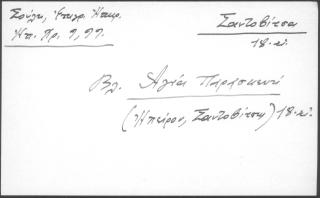 Σούλη, Ἐπιγρ. Ἠπειρ.
Ἠπ. Χρ. 9, 99.
Σαντοβίτσα
18. αἰ.
Βλ. Ἁγία Παρασκευή
(Ἤπειρος, Σαντοβίτσα) 18. αἰ.